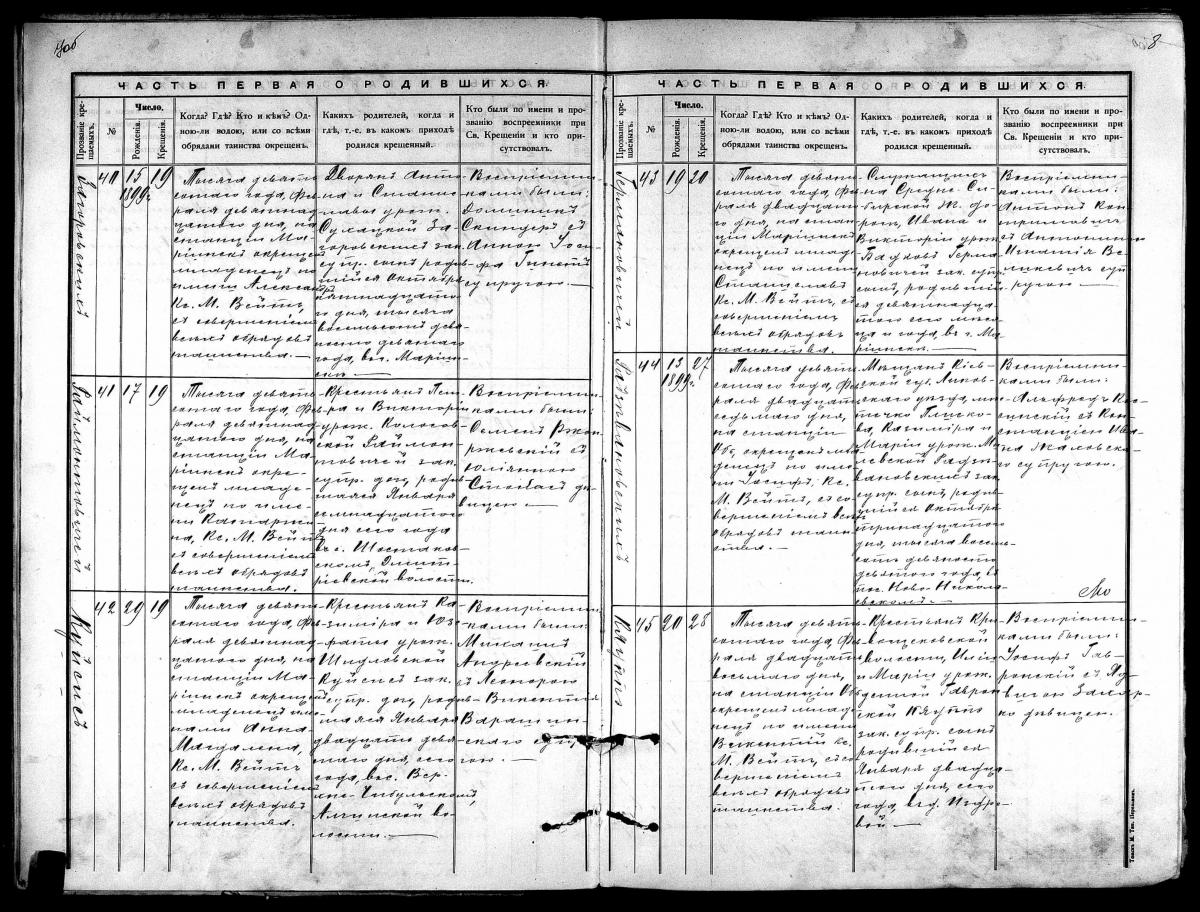 8
ЧАСТЬ ПЕРВАЯ О РОДИВШИХСЯ
Прозваніе крещаемыхъ.
№
Число.
Рожденія.
Крещенія.
Когда? Гдѣ? Кто и кѣмъ? Од-
ною-ли водою, или со всѣми
обрядами таинства окрещенъ.
Какихъ родителей, когда и
гдѣ, т.-е. въ какомъ приходѣ
родился крещенный.
Кто были по имени и про-
званію воспреемники при
Св. Крещеніи и кто при-
сутствовалъ.
40
15
1899г.
19
Тысяча девять-
сотаго года, Фев-
раля девятнад-
цатаго дня, на
станціи Ма-
ріинскъ окрещенъ
младенецъ по
имени Александръ
Кс. М. Вейтъ,
съ совершеніемъ
всѣхъ обрядовъ
таинства.—
Дворянъ Анто-
на и Станис-
лавы урож.
Загоровскихъ зак.
супр. сынъ родив-
шійся Октября
пятнадцата-
го дня, тысяча
восемьсотъ девя-
носто девятаго
года, въ г. Маріин-
скѣ.—
Воспріемни-
ками были:
Доминикъ
съ
Анною Іоси-
фа
супругою.—
41
17
19
Тысяча девять-
сотаго года, Фев-
раля девятнад-
цатаго дня, на
станціи Ма-
ріинскъ окре-
щенъ младе-
нецъ по име-
ни Катари-
на, Кс. М. Вейтъ
съ совершеніемъ
всѣхъ обрядовъ
таинства.—
Крестьянъ Пет-
ра и Викторіи
урож. Колосов-
ской Раймон-
товичей зак.
супр. дочь, родив-
шаяся Января
семнадцатаго
дня сего года
въ с. Шостаков-
скомъ, Дмит-
ріевской волости.
Воспріемни-
ками были:
Семенъ Ржон-
ржевскій съ
Юліянною
Стомбасъ дѣ-
вицею.—
Куйсисъ
42
29
19
Тысяча девять-
сотаго года, Фев-
раля девятнад-
цатаго дня, на
станціи Ма-
ріинскъ окрещенъ
младенецъ име-
нами Анна
Магдалена,
Кс. М. Вейтъ
съ совершеніемъ
всѣхъ обрядовъ
таинства.
Крестьянъ Ка-
зиміра и Юз-
фаты урож.
Шидловской
Куйсисъ зак.
супр. дочь, родив-
шаяся Января
двадцать девя-
таго дня, сего
года, въ с. Верх-
не-Чебульскомъ,
Алчинской во-
лости.—
Воспріемни-
ками были:
Михаилъ
Андреевскій
съ Леонорою
Викентія
супру-
гою.—
ЧАСТЬ ПЕРВАЯ О РОДИВШИХСЯ.
Прозваніе крещаемыхъ.
№
Число.
Рожденія.
Крещенія.
Когда? Гдѣ? Кто и кѣмъ? Од-
ною-ли водою, или со всѣми
обрядами таинства окрещенъ.
Какихъ родителей, когда и
гдѣ, т.-е. въ какомъ приходѣ
родился крещенный.
Кто были по имени и про-
званію воспреемники при
Св. Крещеніи и кто при-
сутствовалъ.
Германовичей
43
19
20
Тысяча девять-
сотаго года, Фев-
раля двадцата-
го дня, на стан-
ціи Маріинскъ
окрещенъ младе-
нецъ по имени
Станиславъ
Кс. М. Вейтъ, съ
совершеніемъ
всѣхъ обрядовъ
таинства.
Служащихъ
на Средне-Си-
бирской Ж. до-
рогѣ, Ивана и
Викторіи урож.
Герма-
новичей зак. супр.
сынъ, родившій-
ся девятнадца-
таго сего мѣся-
ца и года, въ г. Ма-
ріинскѣ.
Воспріемни-
ками были:
Антонъ
съ Антониною
Игнатія
суп-
ругою.—
44
13
1899г.
27
Тысяча девять-
сотаго года, Фев-
раля двадцать
седьмаго дня,
на станціи
Обь, окрещенъ мла-
денецъ по име-
ни Іосифъ, Кс.
М. Вейтъ, съ со-
вершеніемъ всѣхъ
обрядовъ таин-
ства.—
Мѣщанъ Кіев-
ской губ. Липов-
скаго уѣзда, мѣс-
течко
Казиміра и
Маріи урож.
зак.
супр. сынъ, родив-
шійся Октября
тринадцатаго
дня, тысяча восемь-
сотъ девяносто
девятаго года, въ
пос. Ново-Никола-
евскомъ.—
Воспріемни-
ками были:
Альфредъ
съ Кон-
станціею Ива-
на
го супругою.
45
20
28
Тысяча девять-
сотаго года, Фев-
раля двадцать
восьмаго дня,
на станціи Обь
окрещенъ младе-
нецъ по имени
Викентій Кс.
М. Вейтъ, съ со-
вершеніемъ
всѣхъ обрядовъ
таинства.
Крестьянъ Кри-
вощековской
волости,
и Маріи урож-
денной Гаврон-
ской
зак. супр. сынъ
родившійся
Января двадца-
таго дня, сего
года, въ д.
Воспріемни-
ками были:
Іосифъ Гав-
ронскій съ Яд-
вигою
дѣвицею.—
Томскъ М. Тип. Перельманъ.